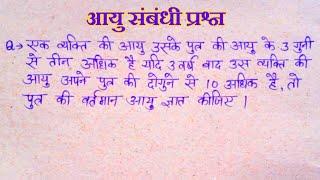 आयु संबंधी प्रश्न
Q→ एक व्यक्ति की आयु उसके पुत्र की आयु के 3 गुनी
से तीन अधिक है यदि 3 वर्ष बाद उस व्यक्ति की
आयु अपने पुत्र की दोगुने से 10 अधिक है, तो
पुत्र की वर्तमान आयु ज्ञात कीजिए ।